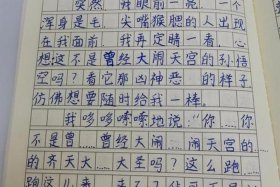 突然，我眼前一亮，一个
浑身是毛，尖嘴猴腮的人出现
在我面前，我再定睛一看，心
想：这不是曾经大闹天宫的孙悟
空吗？看它那凶神恶煞的样子
仿佛想要随时给我一棒。
我哆哆嗦嗦地说：“你……你
不是曾……曾经大闹……闹天宫的
的齐天大……大圣吗？这么跑
跑这儿来